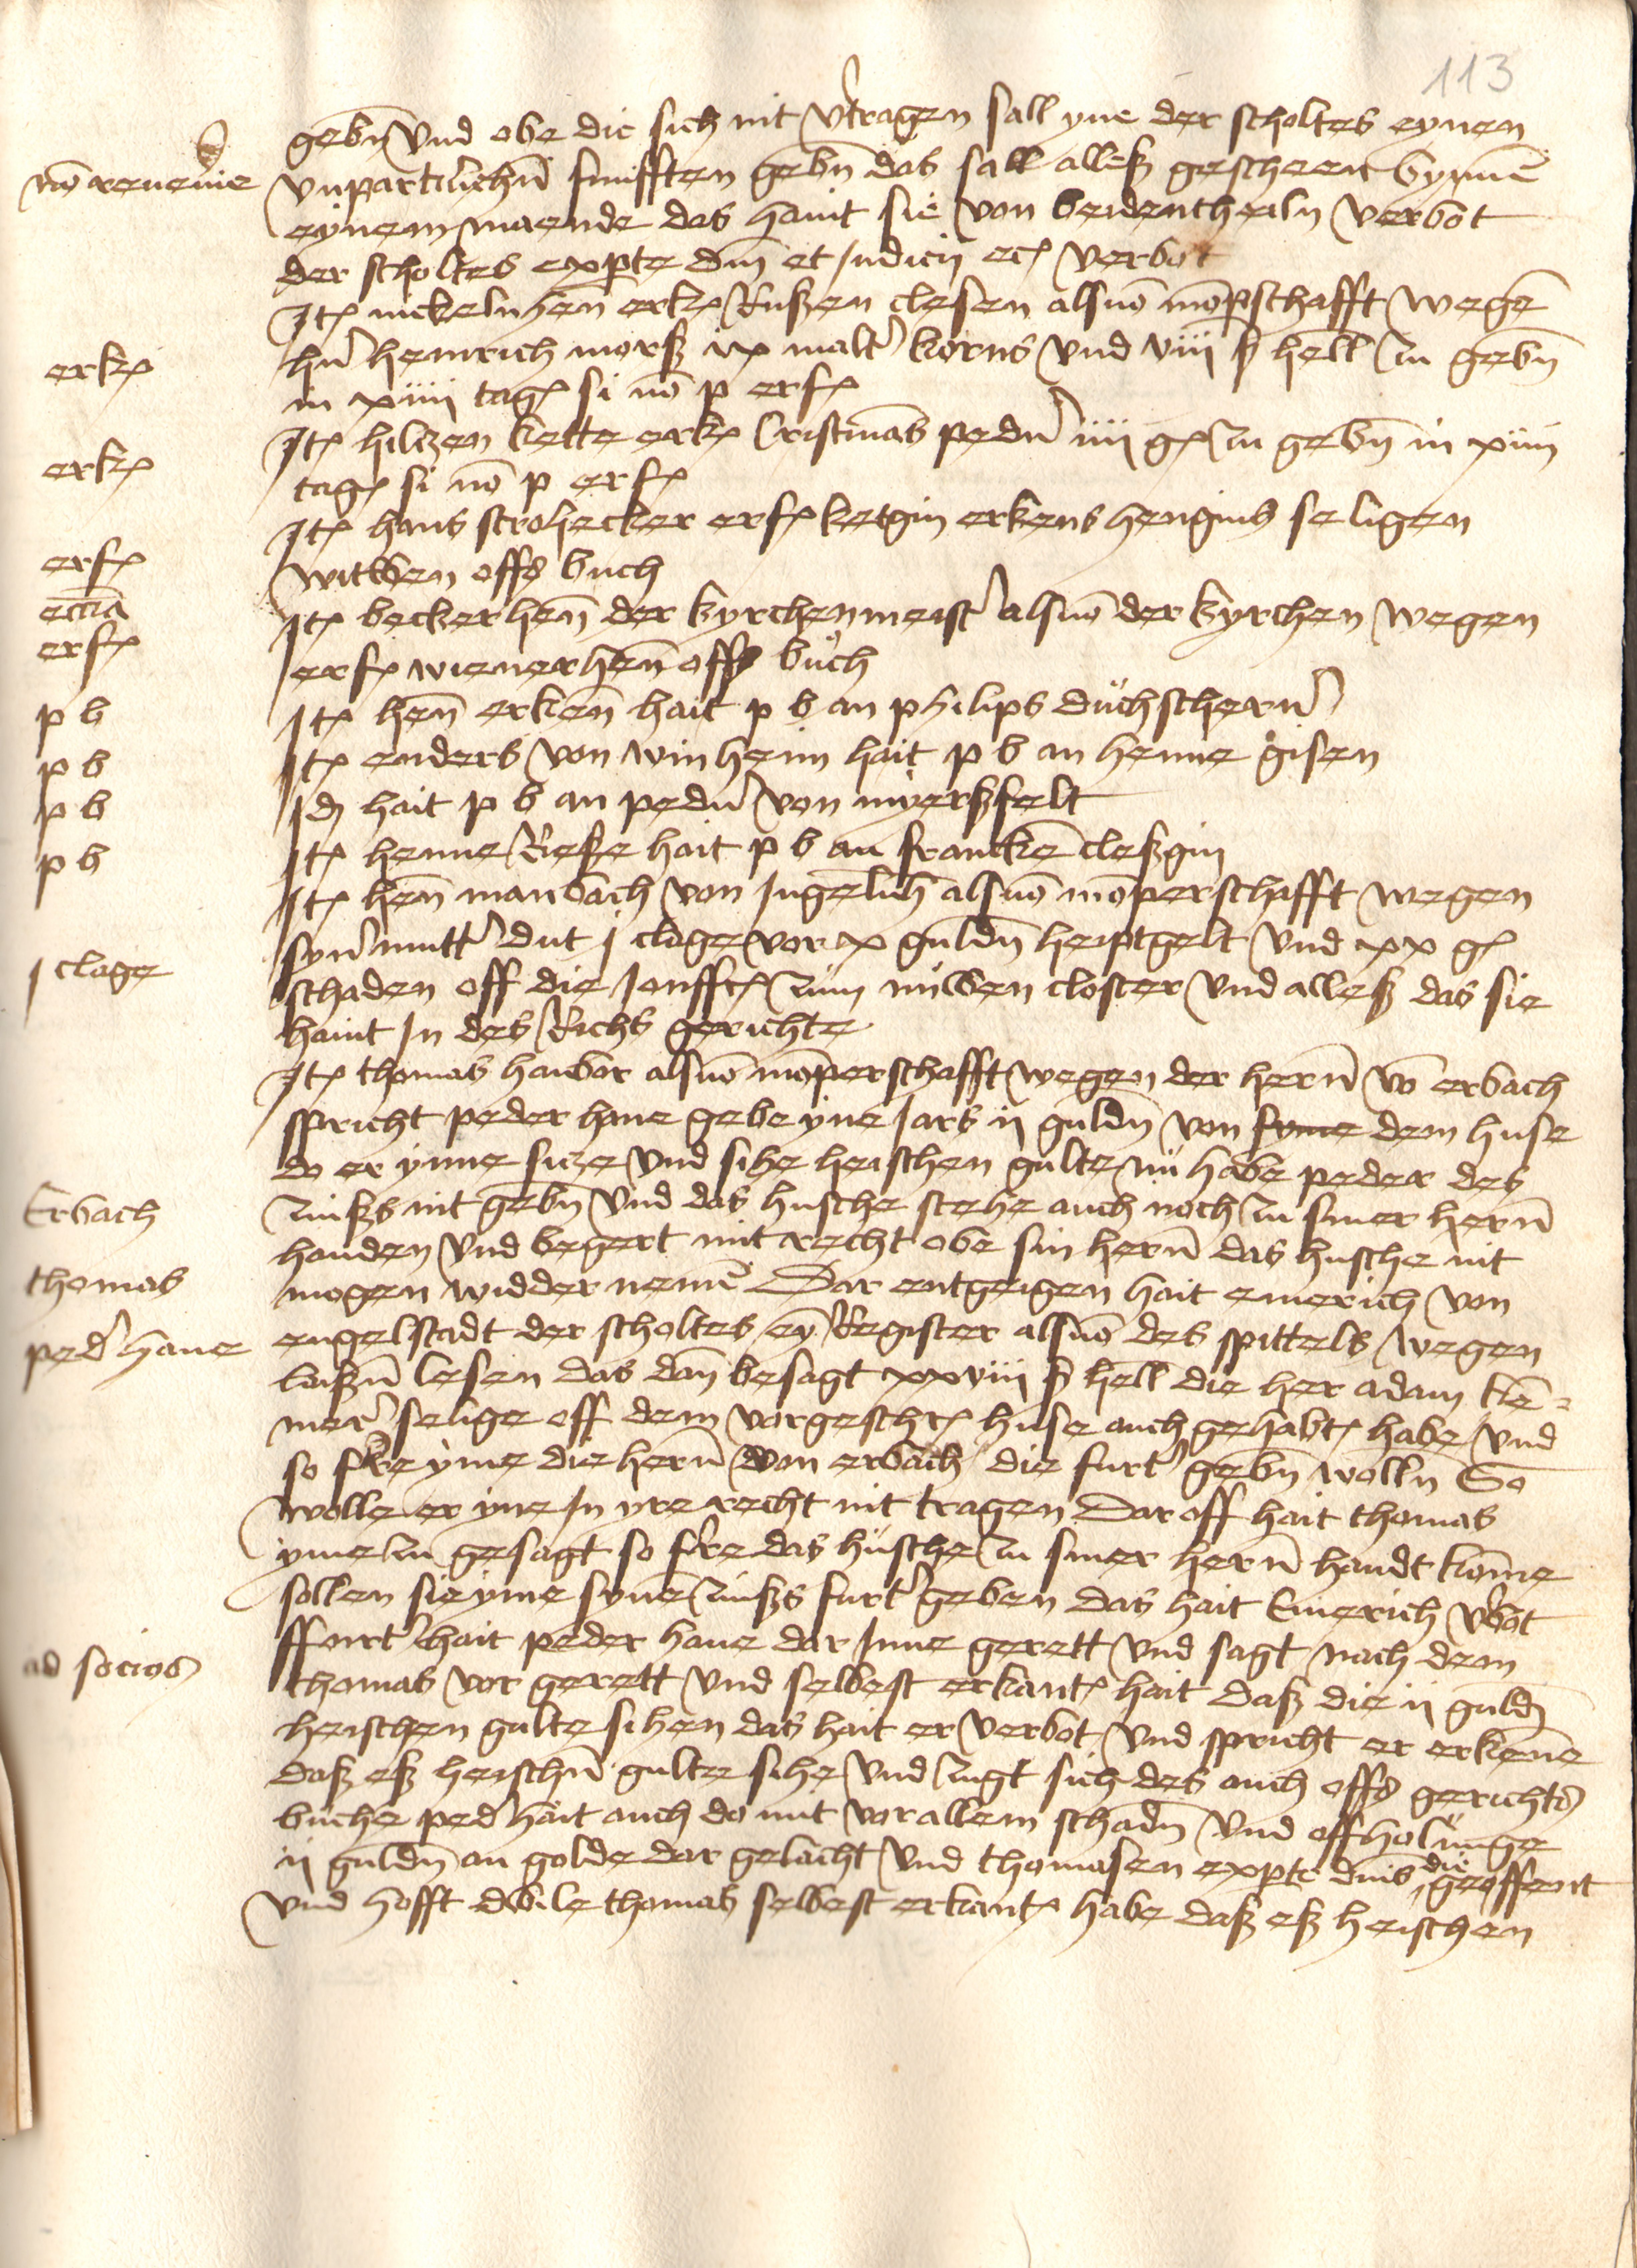 113
gebn̄ vnd obe die sich nit v̓tragen sall yne der scholtes eynen
nō reuenie vnpartihchn̄ funfften gebn̄ das sall alleß gescheen bynnē
eynem maende das haint sie von beidentheiln verbot
der scholtes ex parte dn̄i et Judicij ec verbot
Itē nickeln hen̄ erkē Rußen clesen alsuō mōpschafft wegē
erkē hn̄ heinrich morß ix malt̓ korns vnd viiij ß hell zu gebn̄
in xiiij tagē si nō p erfē
erkē Itē hiltzen kette erkē Cristmās pedn̓ iiij gē zu gebn̄ in xiiij
tagē si nō p erfē
Itē hans stroHecker erfē ketgin erkens hengins seligen
erfē witwen offs buch
eccīa Itē beckerhen̄ der kyrchenmeist̓ alsuō der kyrchen wegen
erfē erfē wienerhen̄ offs buch
p b Itē hen̄ erken̄ hait p b an philips duchschern̓
p b Itē enders von winheim hait p b an henne gisen
p b Id̄ hait p b an pedn̓ von myerßfelt
p b Itē henne Rieße hait p b an franckē cleßgin
Itē hen̄ manbach von Ingelnh̄ alsuō mōperschafft wegen
syn̓ mutt̓ dut j clage vor x guldn̄ heiptgelt vnd xx gē
j clage schaden off die Jonffē zum nuwen closter vnd alleß das sie
haint In des Richs gerichte
Itē thomas hanbor alsuō mōperschafft wegen der hern̄ vō erbach
spricht peder hane gebe yne Jars ij guldn̄ von syme dem huse
do er ynne sitze vnd sihe heischen gulte nū habe peder des
Erbach zinßs nit gebn̄ vnd das husche stehe auch noch zu siner hern̄
handen vnd begert mit recht obe sin hern̄ das husche nit
thomas mogen widder nemē Dar entgeigen hait emerich von
ped̓ hane engelstadt der scholtes eȳ Register alsuō des spittels wegen
laißn̄ lesen das dan̄ besagt xxviij ß hell die her adam kē=
mer̓ selige off dem vorgeschrē huse auch gehabtē habe vnd
so fͬre yme die hern̄ von erbach die furt̓ gebn̄ wolln̄ So
wolle er yne In yre recht nit tragen Dar off hait thomas
yme zu gesagt so fͬre das husche zu siner hern̄ handt kōme
sollen sie yme synē zinßs furt̓ geben das hait Emerich v̓bot
ffurt̓ hait peder hane dar Inne gerett vnd sagt nach dem
ad socios thomas vor gerett vnd selbest erkantē hait daß die ij guld̄
heischen gulte sihen das hait er verbot vnd spricht er erkenē
daß eß heischn̄ gulte sihe vnd zugt sich des auch offs gerichts
buche ped̓ hait auch do mit vor allem schadn̄ vnd offholunge
ij guldn̄ an golde dar gelacht vnd thomasen ex parte dn̄is die geoffent
vnd hofft dwile thomas selbest erkantē habe daß eß heischen